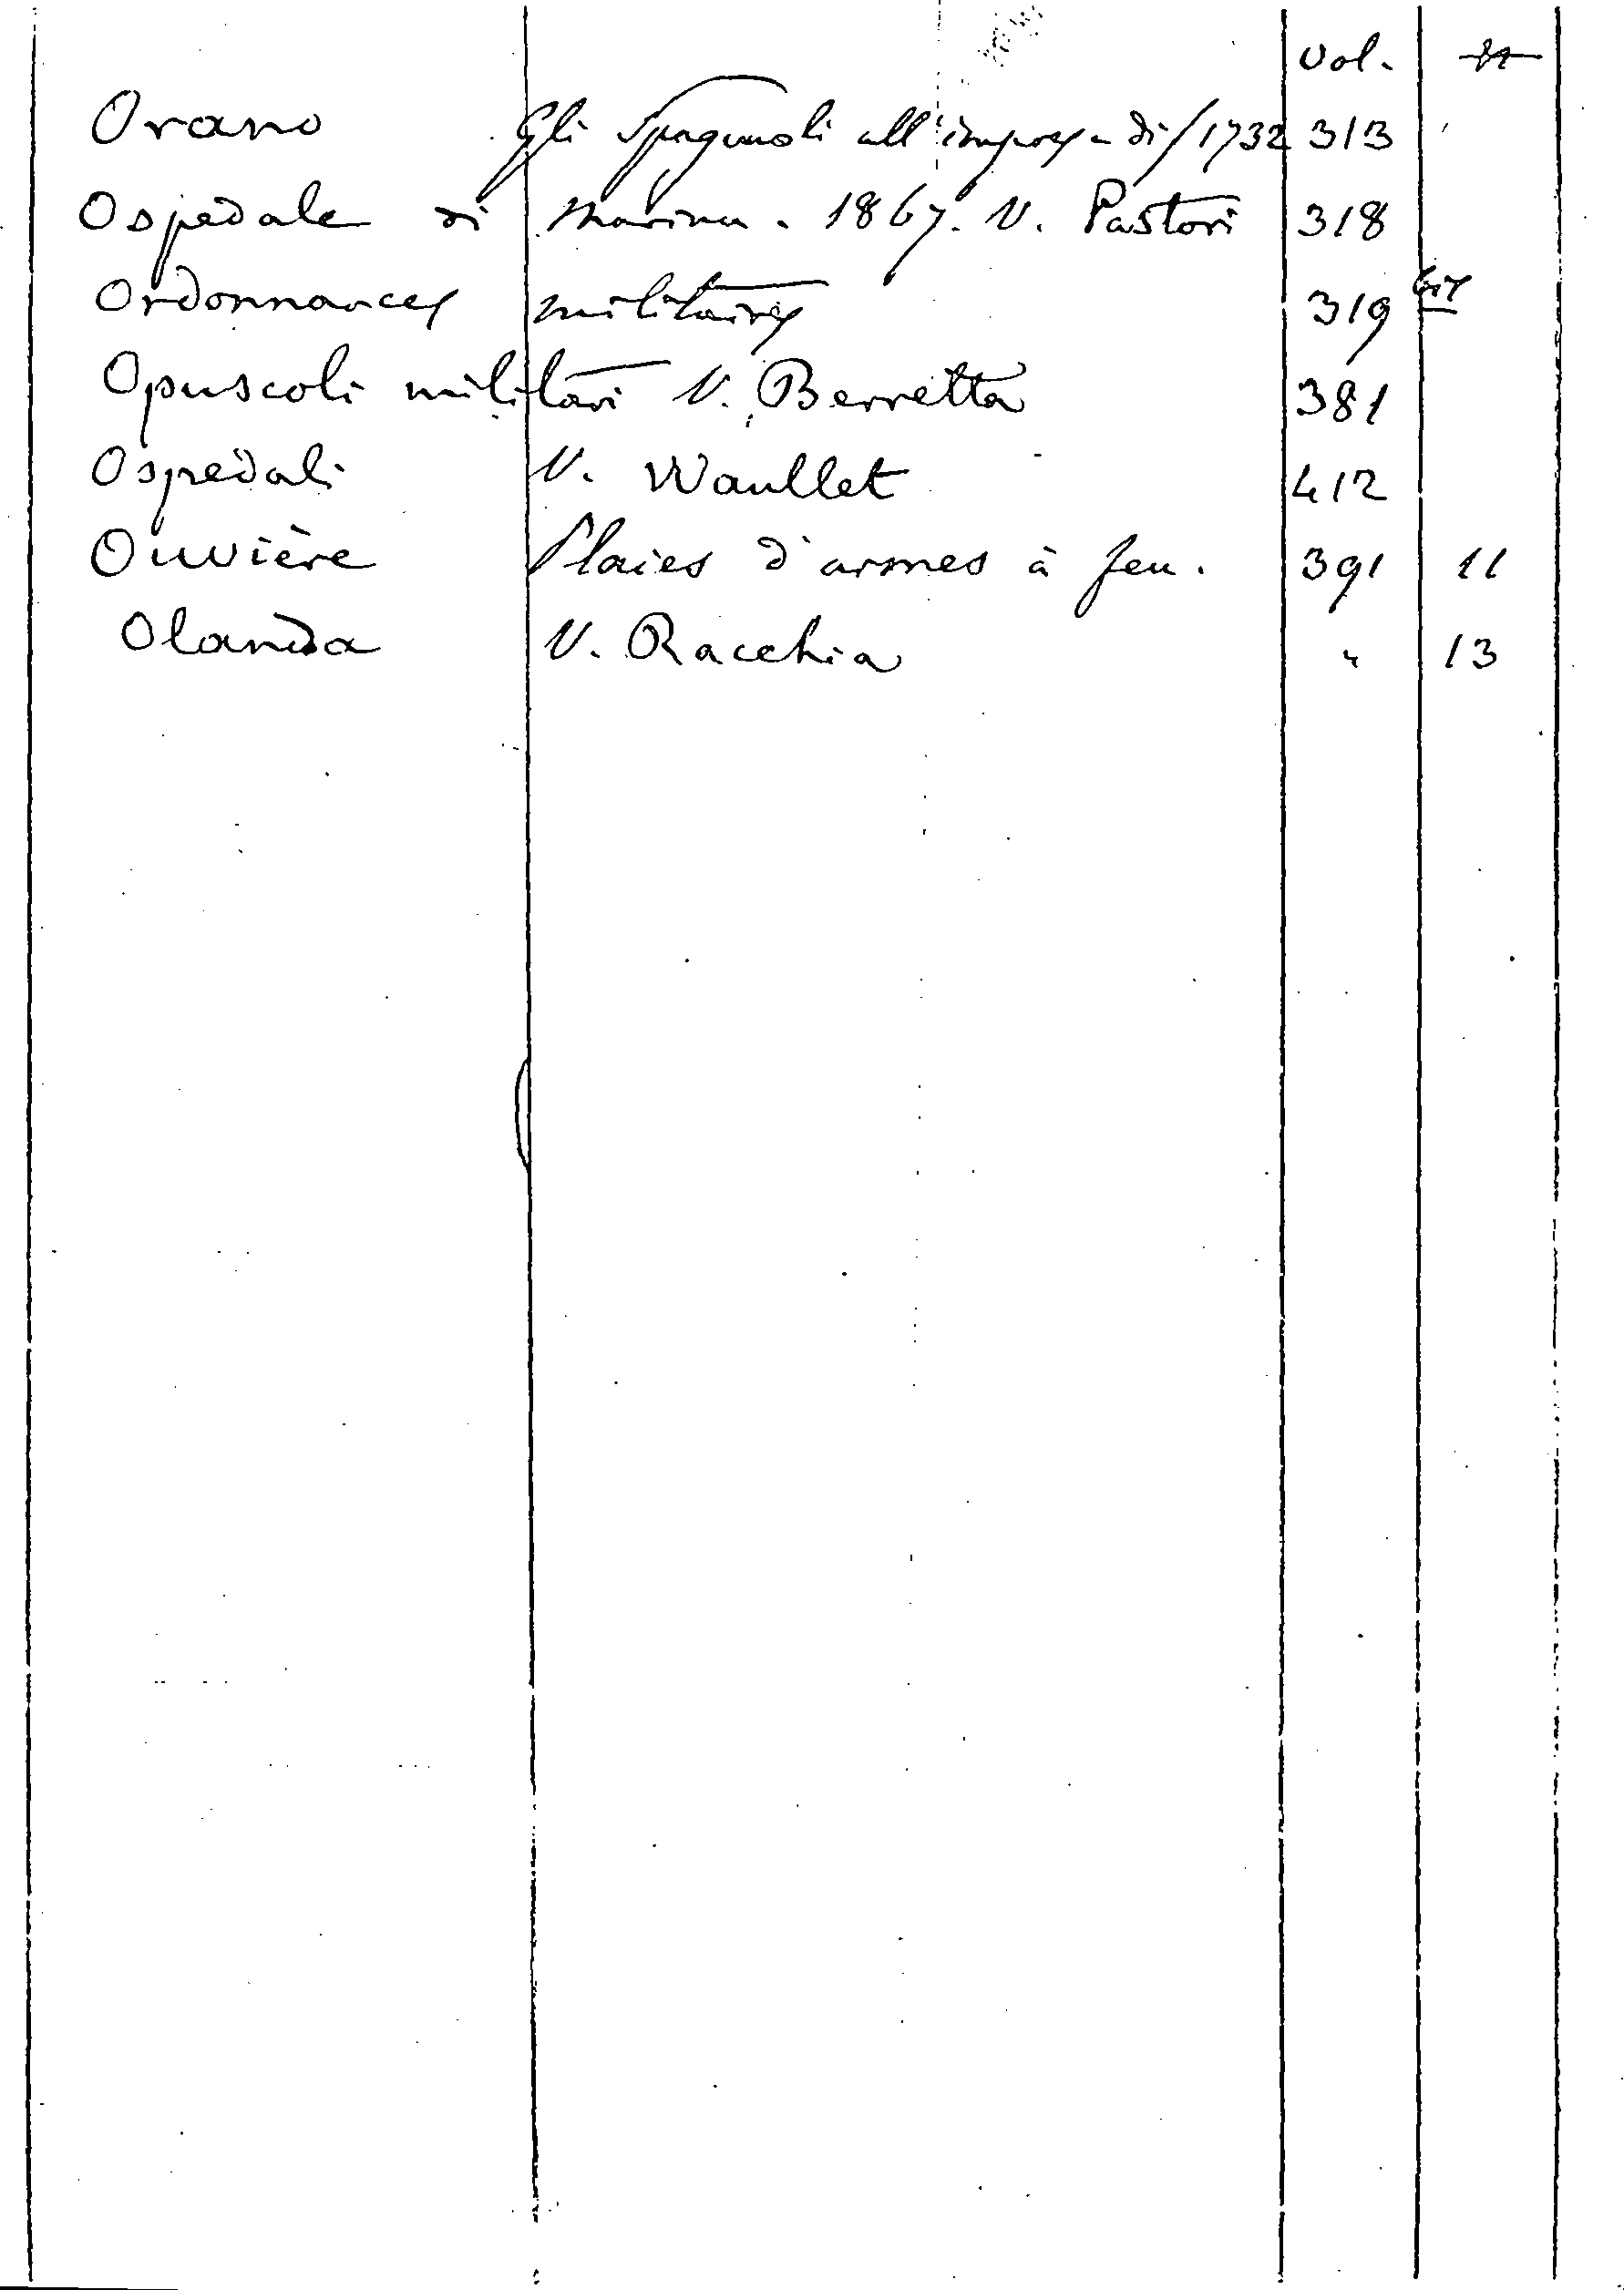 Vol.
Orano Gli Spagnuoli all'impresa di / 1732 313
Ospedale di Marina. 1867. V. Pastori 318
Ordonnances militaires 319 bis
Opuscoli militari V. Berretta 381
Ospedali V. Waullet 412
Ouvière Plaies d'armes à feu. 391 11
Olanda V. Racchia " 13